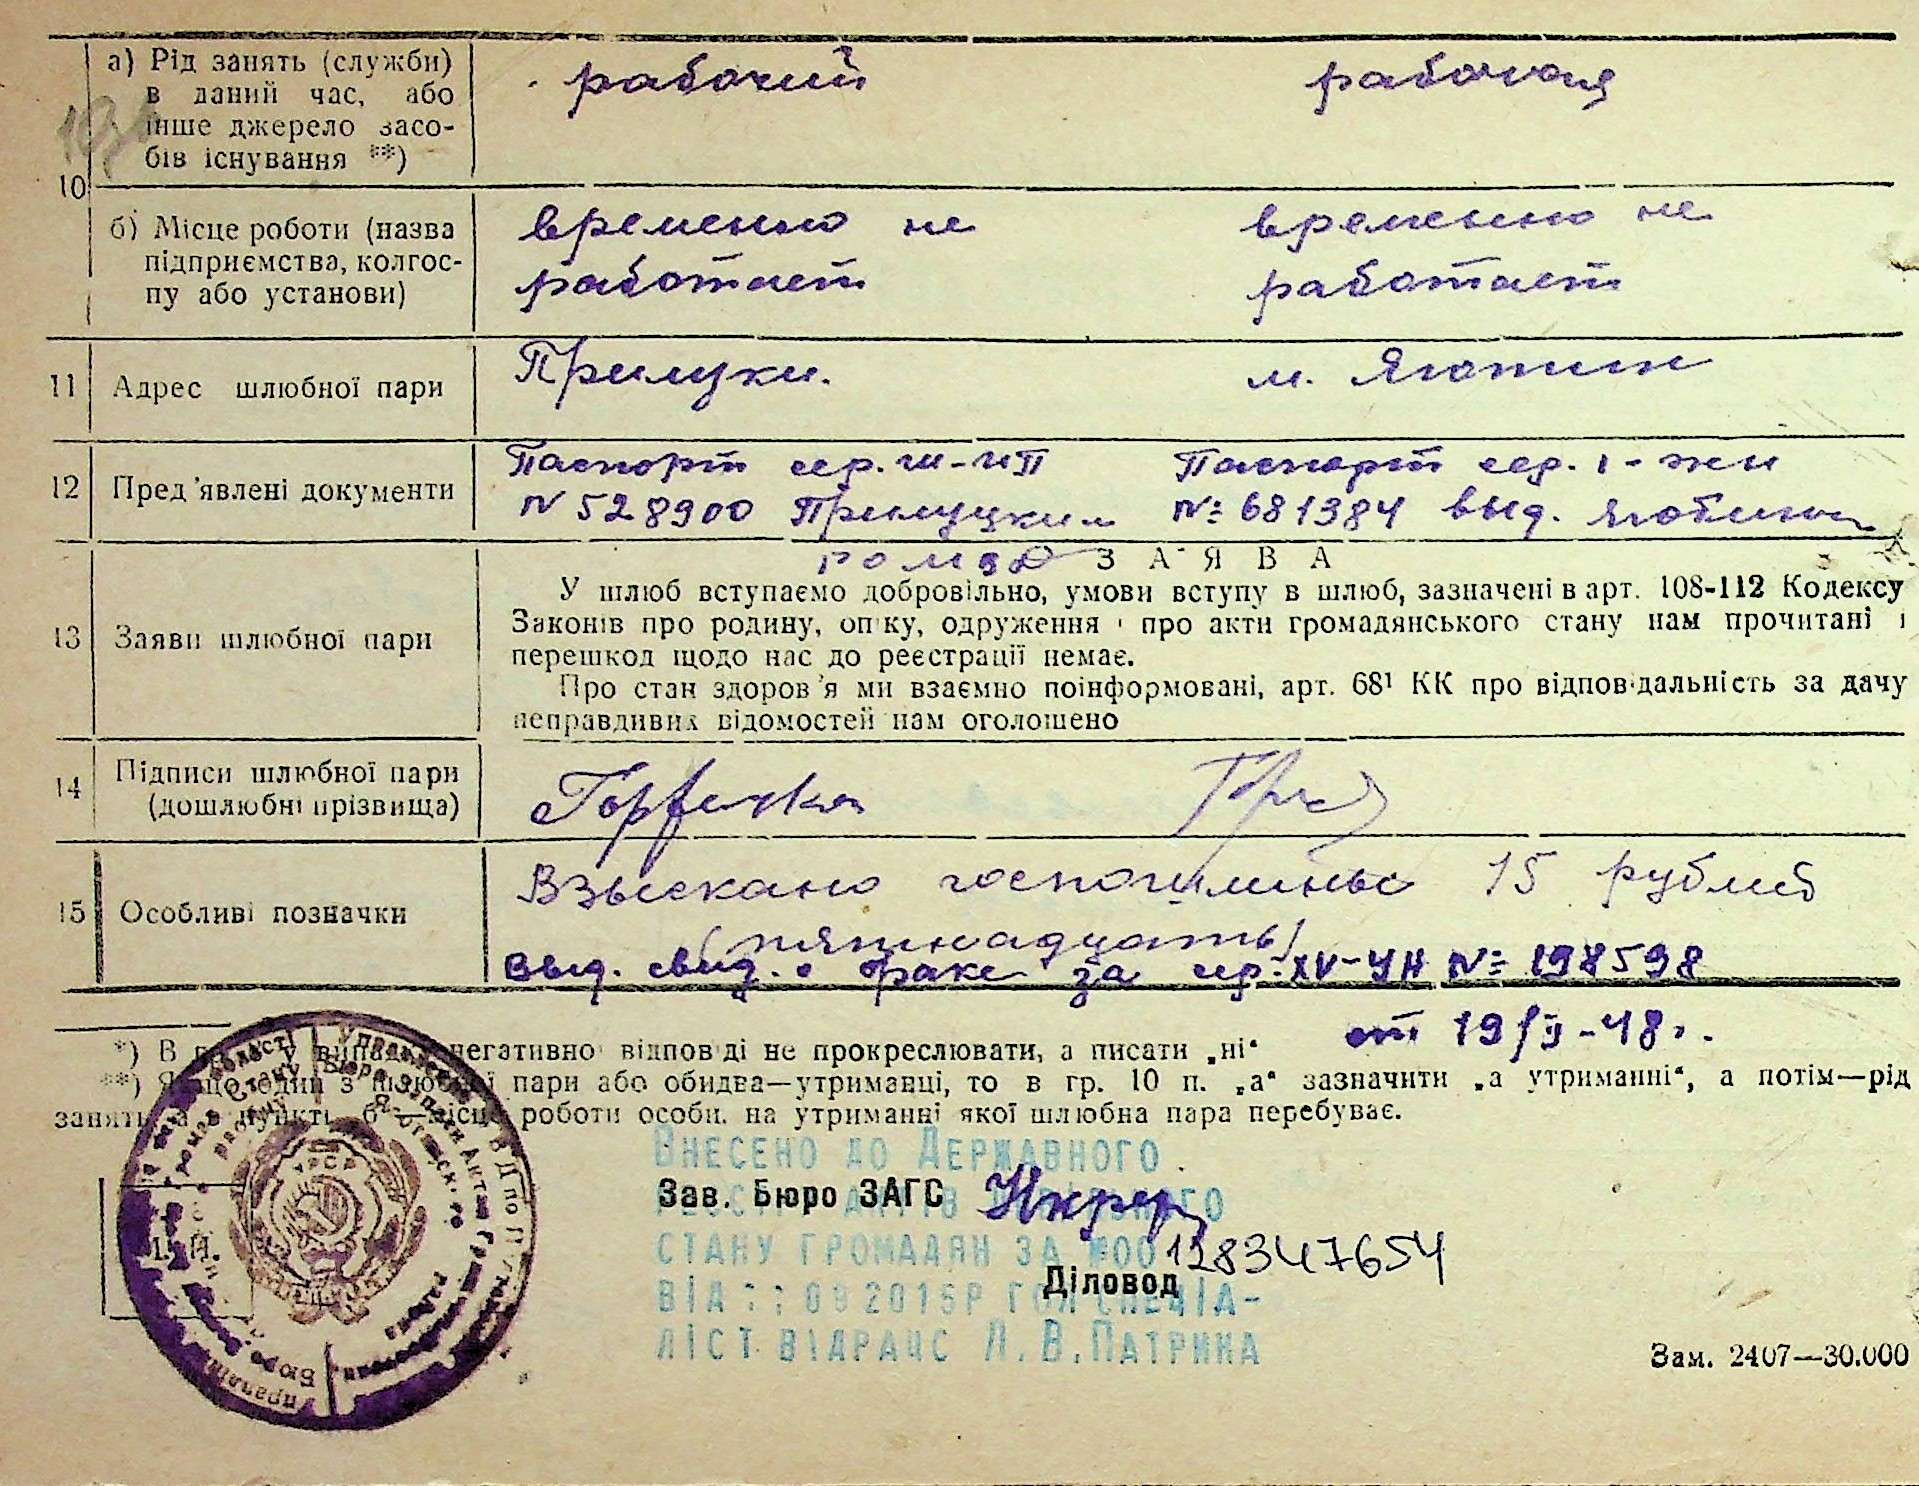 а) Рід занять (служби) в даний час, або інше джерело засобів існування **)
рабочий рабочая
10
б) Місце роботи (назва підприємства, колгоспу або установи)
временно не временно не
работает работает
11 Адрес шлюбної пари
Прилуки. м. Яготин
12 Пред'явлені документи
Паспорт сер. Паспорт сер.
N 528900 Прилуцким № 681384 выд.
З А Я В А
13 Заяви шлюбної пари
У шлюб вступаємо добровільно, умови вступу в шлюб, зазначені в арт. 108-112 Кодексу
Законів про родину, опіку, одруження і про акти громадянського стану нам прочитані і
перешкод щодо нас до реєстрації немає.
Про стан здоров'я ми взаємно поінформовані, арт. 68¹ КК про відповідальність за дачу
неправдивих відомостей нам оголошено
14 Підписи шлюбної пари
(дошлюбні прізвища)
15 Особливі позначки
Взыскано госпошлины 15 рублей
(пятнадцать)
Выд. свид. о браке за сер. XV-УН № 198598
от 19/II-48г.
*) В разі у випадку негативної відповіді не прокреслювати, а писати „ні“
**) Якщо один з шлюбної пари або обидва—утриманці, то в гр. 10 п. „а“ зазначити „а утриманні“, а потім—рід
занять, а в пункті „б“ місце роботи особи, на утриманні якої шлюбна пара перебуває.
Внесено до Державного
Зав. Бюро ЗАГС
стану громадян за №00128347654
Діловод
ліст відрацс Л.В.Патрина
М. П.
Зам. 2407—30.000